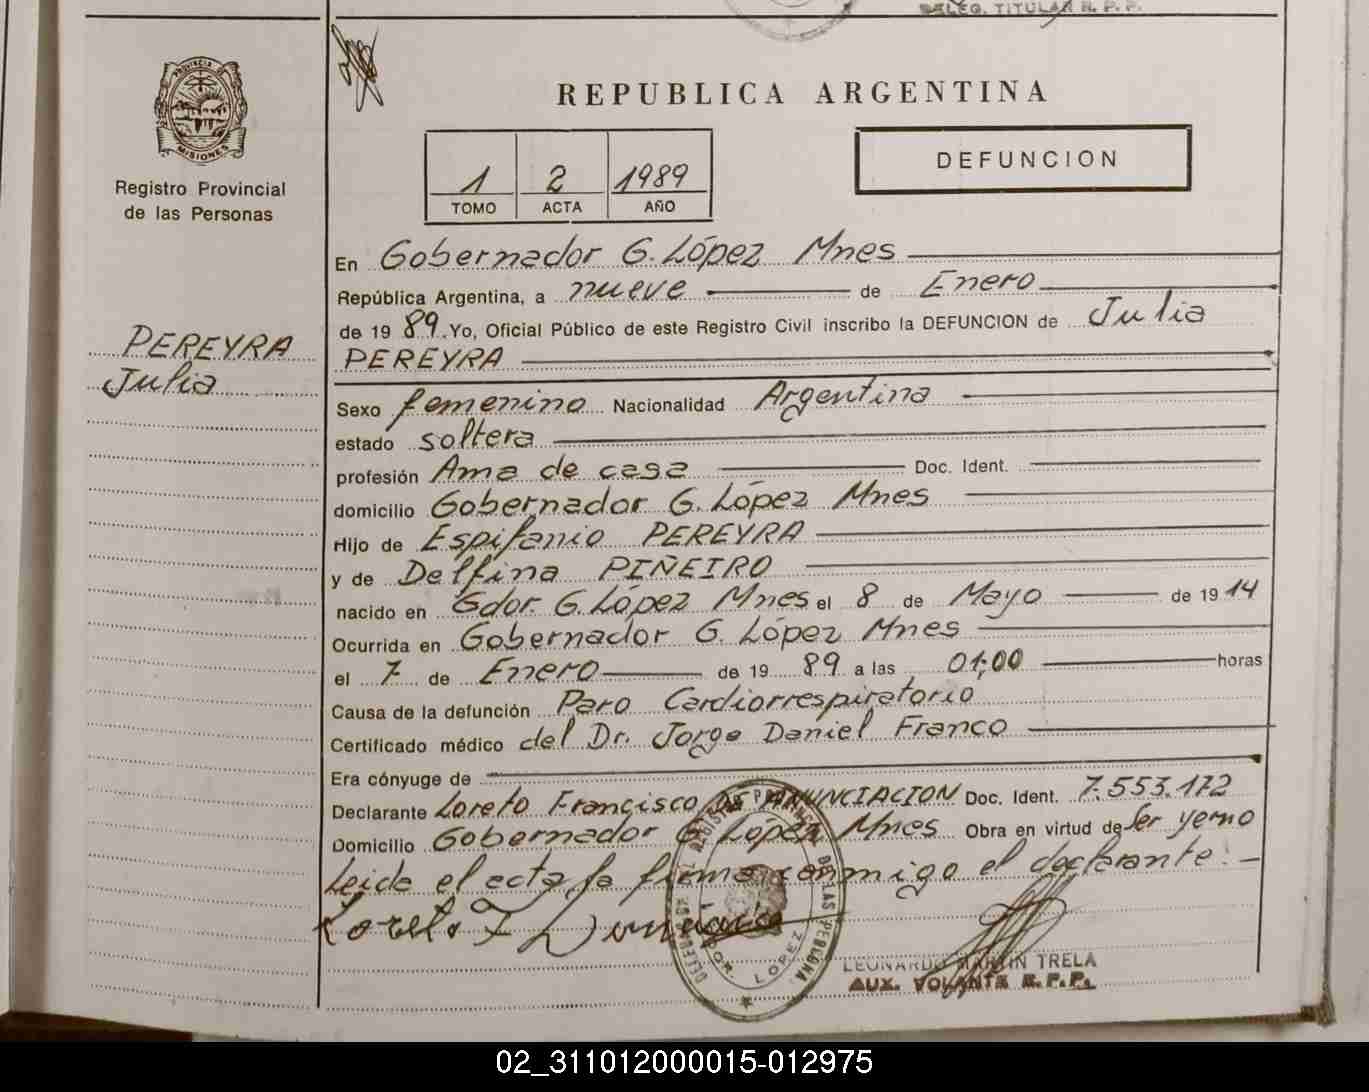 DELEG. TITULAR R. P. P.
PROVINCIA DE
MISIONES
Registro Provincial
de las Personas
REPUBLICA ARGENTINA
1 2 1989
TOMO ACTA AÑO
DEFUNCION
PEREYRA
Julia
En Gobernador G. López Mnes
República Argentina, a nueve de Enero
de 1989. Yo, Oficial Público de este Registro Civil inscribo la DEFUNCION de Julia
PEREYRA
Sexo femenino Nacionalidad Argentina
estado soltera
profesión Ama de casa Doc. Ident.
domicilio Gobernador G. López Mnes
Hijo de Espifanio PEREYRA
y de Delfina PIÑEIRO
nacido en Gdor. G. López Mnes el 8 de Mayo de 1914
Ocurrida en Gobernador G. López Mnes
el 7 de Enero de 1989 a las 01,00 horas
Causa de la defunción Paro Cardiorrespiratorio
Certificado médico del Dr. Jorge Daniel Franco
Era cónyuge de
Declarante Loreto Francisco DE ANUNCIACION Doc. Ident. 7.553.172
Domicilio Gobernador G. López Mnes Obra en virtud de ser yerno
Leida el acta, la firma conmigo el declarante.-
Loreto F
LEONARDO MARTIN TRELA
AUX. VOLANTE R.P.P.
02_311012000015-012975